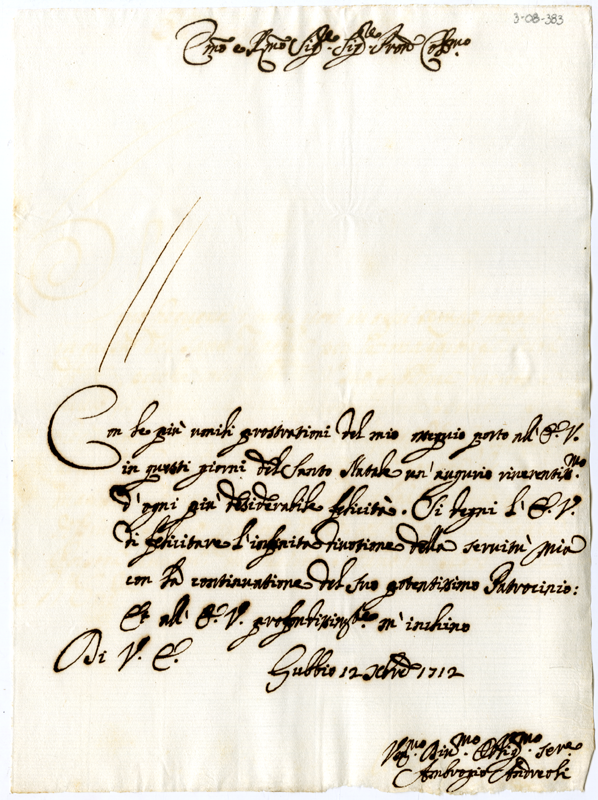 3-08-383
Emo e Rmo Sigre Sigre Pron Colmo
Con le più umili prostrationi del mio ossequio porto all' E. V.
in questi giorni del Santo Natale un' augurio riverentissmo
d' ogni più desiderabile felicità. Si degni l' E. V.
di felicitare l' infinita divotione della servitù mia
con la continuatione del suo potentissimo Patrocinio:
Et all' E. V. profondissimte m' inchino
Di V. E.
Gubbio 12 Xbre 1712
Vmo Divmo Obligmo serre
Ambrogio Andreoli